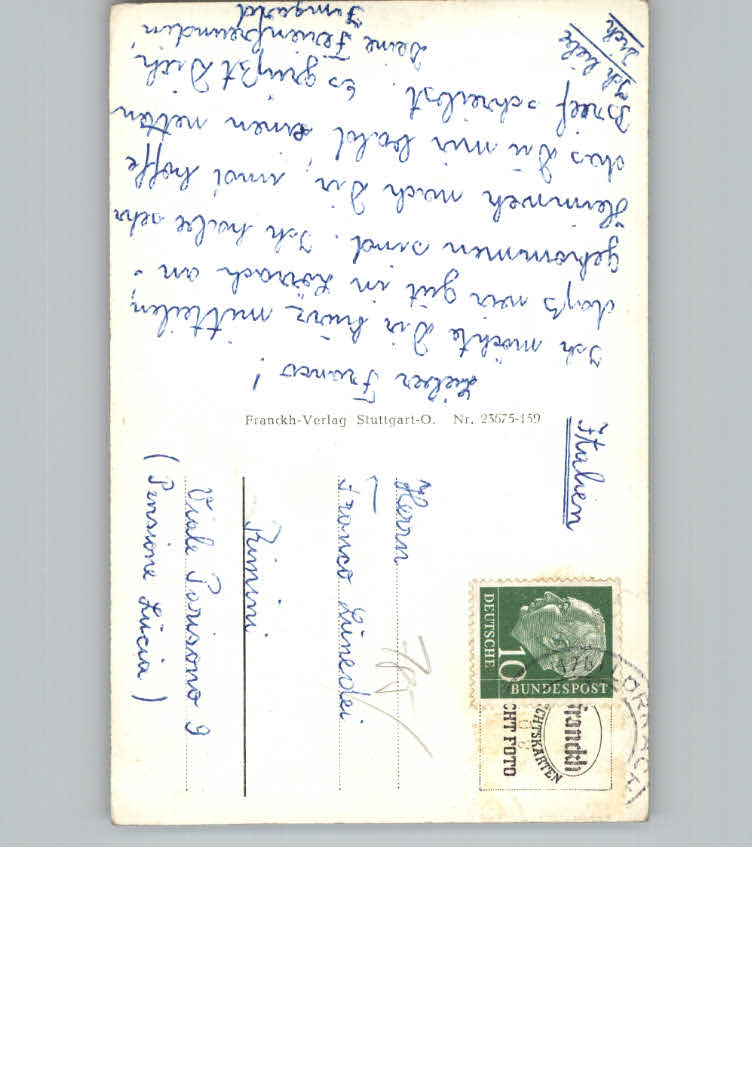 Lieber Franco!
Ich möchte Dir kurz mitteilen,
daß wir gut in Lörrach an-
gekommen sind. Ich habe sehr
Heimweh nach Dir, und hoffe
das Du mir bald einen netten
Brief schreibst. Es grüßt Dich
Deine Ferienfreundin
Irmgard
Ich liebe
Dich
Franckh-Verlag Stuttgart-O. Nr. 23675-159
franckh
CHT FOTO
DEUTSCHE
BUNDESPOST
10
Italien
Herrn
Franco
Rimini
Viale Parisano 9
(Pensione Lucia)